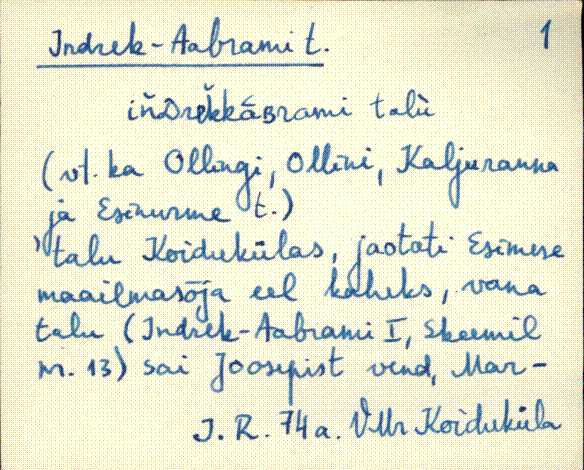 Indrek-Aabrami t. 1
talù
(vt. ka Ollingi, Ollini, Kaljuranna
ja Esinurme t.)
'talu Koidukülas, jaotati Esimese
maailmasõja eel kaheks, vana
talu (Indrek-Aabrami I, skeemil
nr. 13) sai Joosepist vend, Mar-
J. R. 74a. VMr Koiduküla